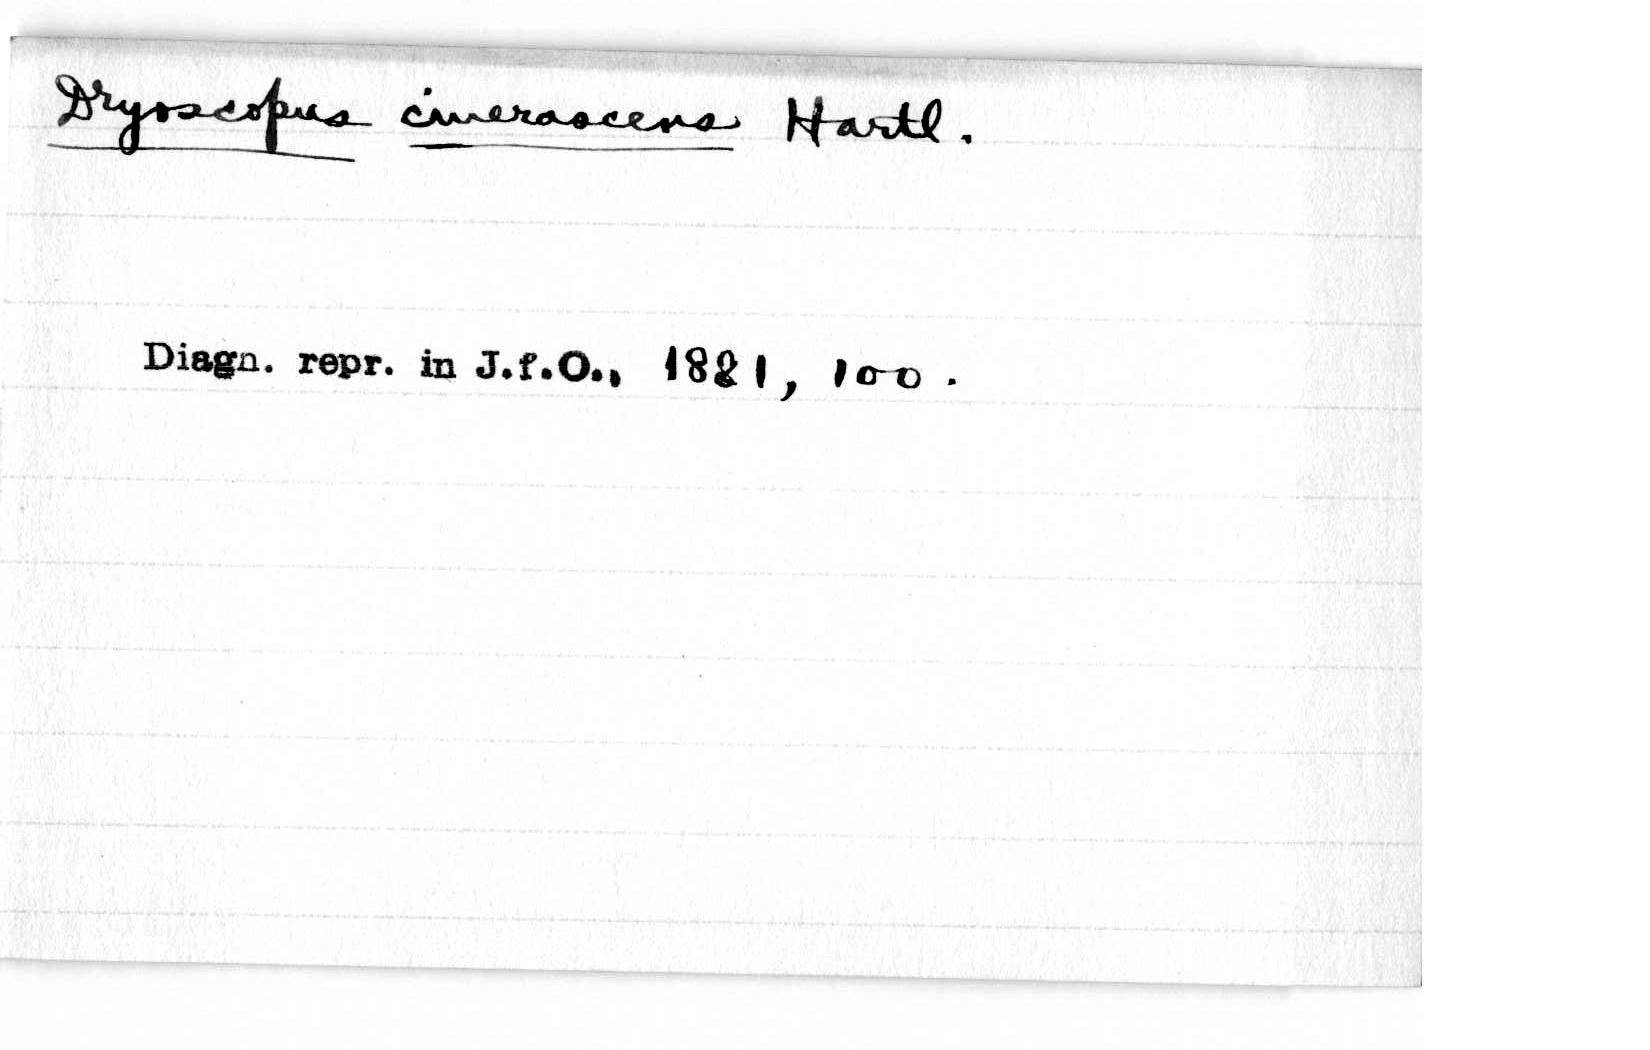 Dryoscopus cinerascens Hartl.
Diagn. repr. in J.f.O., 1881, 100.